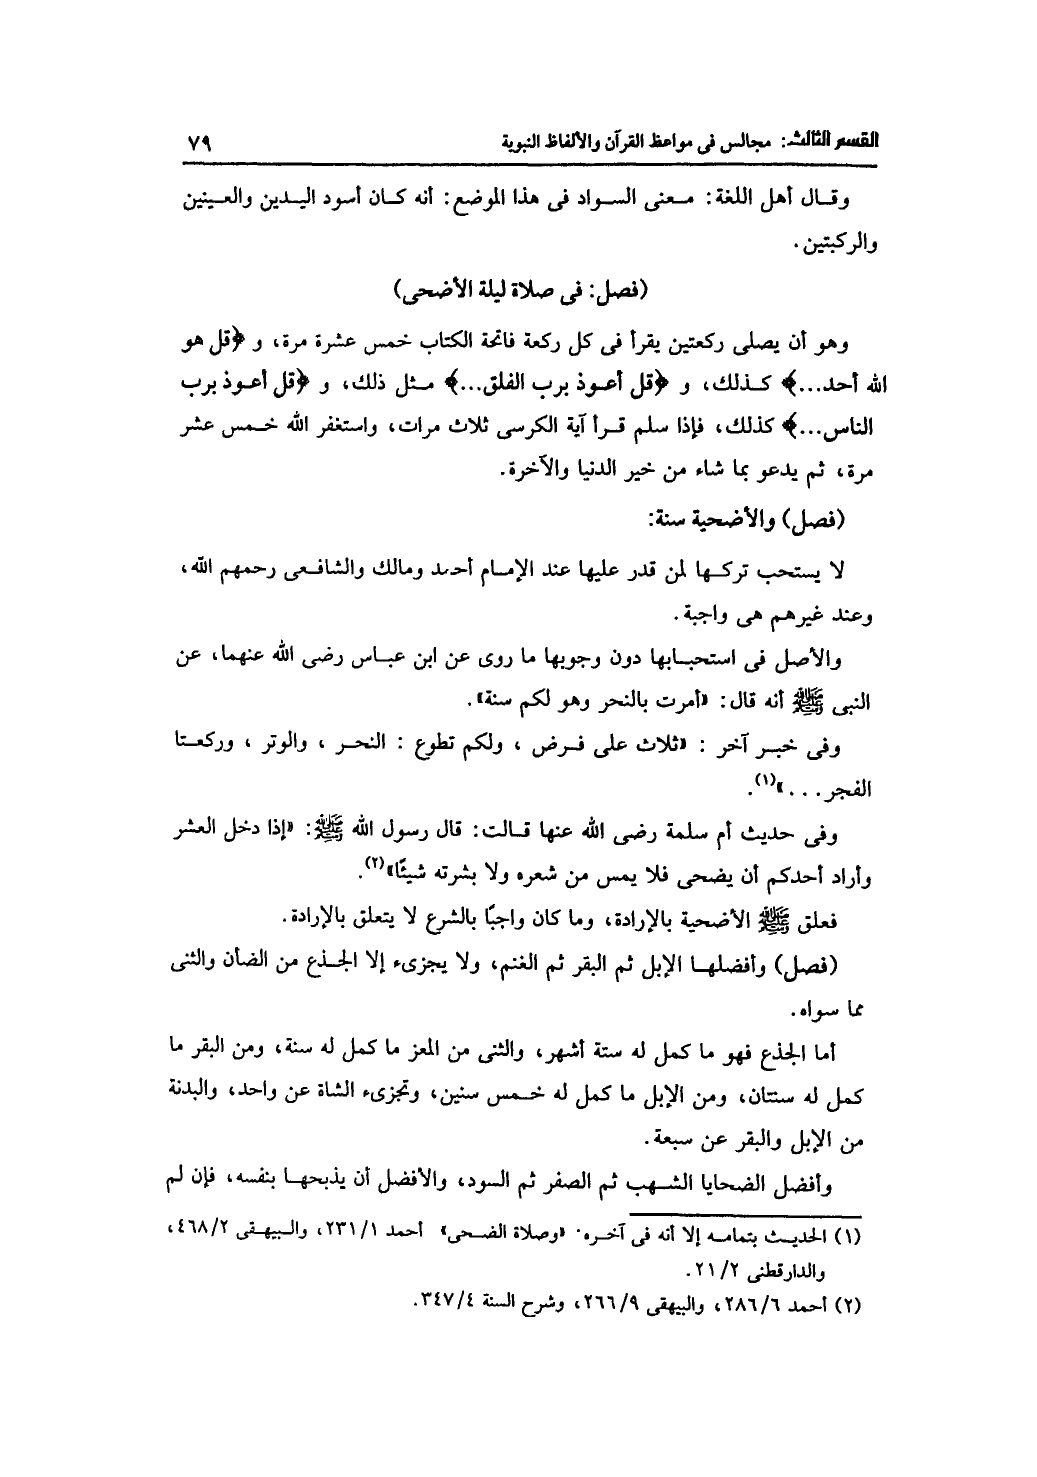 القسم الثالث: مجالس فى مواعظ القرآن والألفاظ النبوية ٧٩
وقال أهل اللغة: معنى السواد فى هذا الموضع: أنه كان أسود اليدين والعينين
والركبتين.
(فصل: فى صلاة ليلة الأضحى)
وهو أن يصلى ركعتين يقرأ فى كل ركعة فاتحة الكتاب خمس عشرة مرة، و ﴿قل هو
الله أحد...﴾ كذلك، و ﴿قل أعوذ برب الفلق...﴾ مثل ذلك، و ﴿قل أعوذ برب
الناس...﴾ كذلك، فإذا سلم قرأ آية الكرسى ثلاث مرات، واستغفر الله خمس عشر
مرة، ثم يدعو بما شاء من خير الدنيا والآخرة.
(فصل) والأضحية سنة:
لا يستحب تركها لمن قدر عليها عند الإمام أحمد ومالك والشافعى رحمهم الله،
وعند غيرهم هى واجبة.
والأصل فى استحبابها دون وجوبها ما روى عن ابن عباس رضى الله عنهما، عن
النبى ﷺ أنه قال: «أمرت بالنحر وهو لكم سنة».
وفى خبر آخر : «ثلاث على فرض ، ولكم تطوع : النحر ، والوتر ، وركعتا
الفجر . . . »(١).
وفى حديث أم سلمة رضى الله عنها قالت: قال رسول الله ﷺ: «إذا دخل العشر
وأراد أحدكم أن يضحى فلا يمس من شعره ولا بشرته شيئًا»(٢).
فعلق ﷺ الأضحية بالإرادة، وما كان واجبًا بالشرع لا يتعلق بالإرادة.
(فصل) وأفضلها الإبل ثم البقر ثم الغنم، ولا يجزىء إلا الجذع من الضأن والثنى
مما سواه.
أما الجذع فهو ما كمل له ستة أشهر، والثنى من المعز ما كمل له سنة، ومن البقر ما
كمل له سنتان، ومن الإبل ما كمل له خمس سنين، وتجزىء الشاة عن واحد، والبدنة
من الإبل والبقر عن سبعة.
وأفضل الضحايا الشهب ثم الصفر ثم السود، والأفضل أن يذبحها بنفسه، فإن لم
(١) الحديث بتمامه إلا أنه فى آخره· «وصلاة الضحى» أحمد ٢٣١/١، والبيهقى ٤٦٨/٢،
والدارقطنى ٢١/٢.
(٢) أحمد ٢٨٦/٦، والبيهقى ٢٦٦/٩، وشرح السنة ٣٤٧/٤.